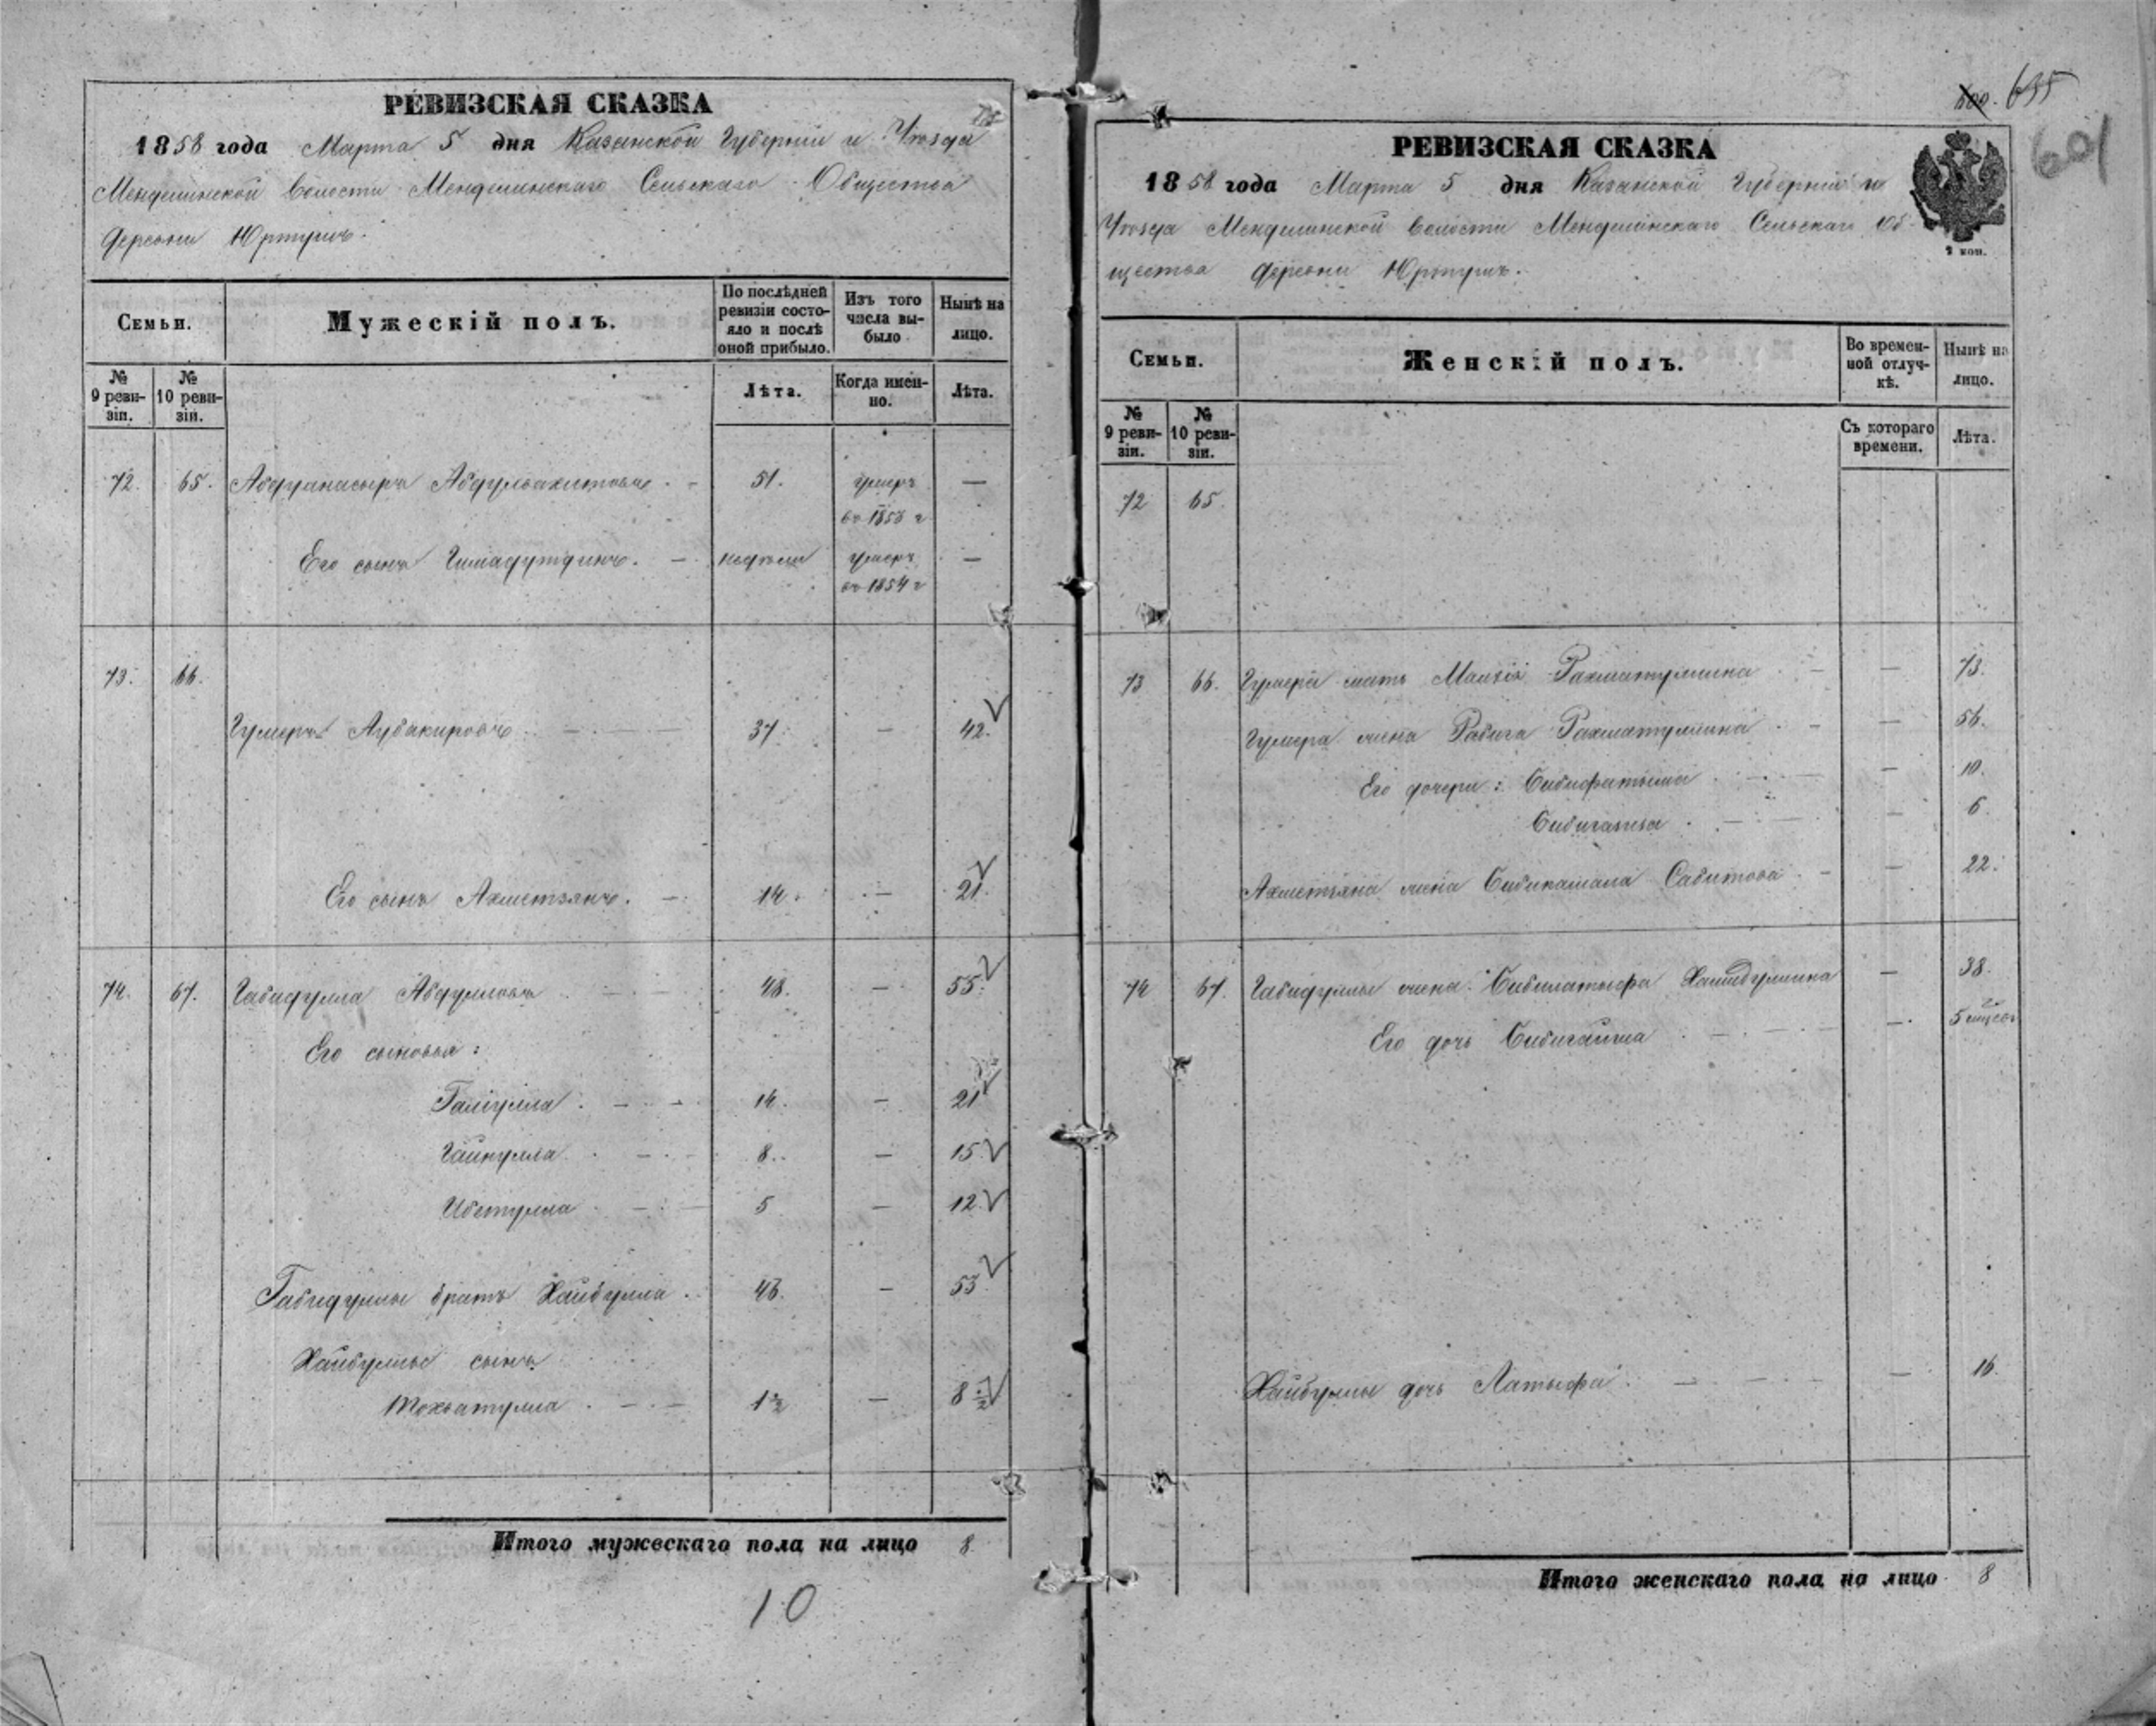 РЕВИЗСКАЯ СКАЗКА
1858 года Марта 5 дня Казанской Губерніи и Уѣзда
Менделинской волости Менделинскаго Сельскаго Общества
деревни Юртушъ.
Семьи.
Мужескій полъ.
По послѣдней ревизіи состояло и послѣ оной прибыло.
Изъ того числа выбыло
Нынѣ на лицо.
№ 9 ревизіи.
№ 10 ревизіи.
Лѣта.
Когда именно.
Лѣта.
72. 65. Абдулнасыръ Абдулвахитовъ. - 51. умеръ —
въ 1853 г
Его сынъ Гимадутдинъ. — недѣли умеръ —
въ 1854 г
73. 66.
Гумеръ Аубакировъ — 37. — 42.
Его сынъ Ахметзянъ. — 14. — 21.
74. 67. Габидулла Абдулловъ — 48. — 55.
Его сыновья:
Галіулла. — 14. — 21
Гайнулла — 8. — 15.
Ибетулла — 5 — 12.
Габидуллы братъ Хайбулла. 46. — 53.
Хайбуллы сынъ
Мохватулла. — 1½ — 8½
Итого мужескаго пола на лицо 8
10
600. 635
601
РЕВИЗСКАЯ СКАЗКА
1858 года Марта 5 дня Казанской Губерніи и
Уѣзда Менделинской волости Менделинскаго Сельскаго Об-
щества деревни Юртушъ.
Семьи.
Женскій полъ.
Во временной отлучкѣ.
Нынѣ на лицо.
№ 9 ревизіи.
№ 10 ревизіи.
Съ котораго времени.
Лѣта.
72 65.
73 66. Гумера мать Рахматуллина — 73.
Гумера жена Рабига Рахматуллина — 56.
Его дочери: Бибифатыма — 10.
Бибигазиза — 6.
Ахметзяна жена Бибикамала Сабитова — 22.
74 67. Габидуллы жена Бибилатыфа Хашибуллина — 38.
Его дочь Бибигайша — 5 мѣсяц
Хайбуллы дочь Латыфа — 16.
Итого женскаго пола на лицо 8